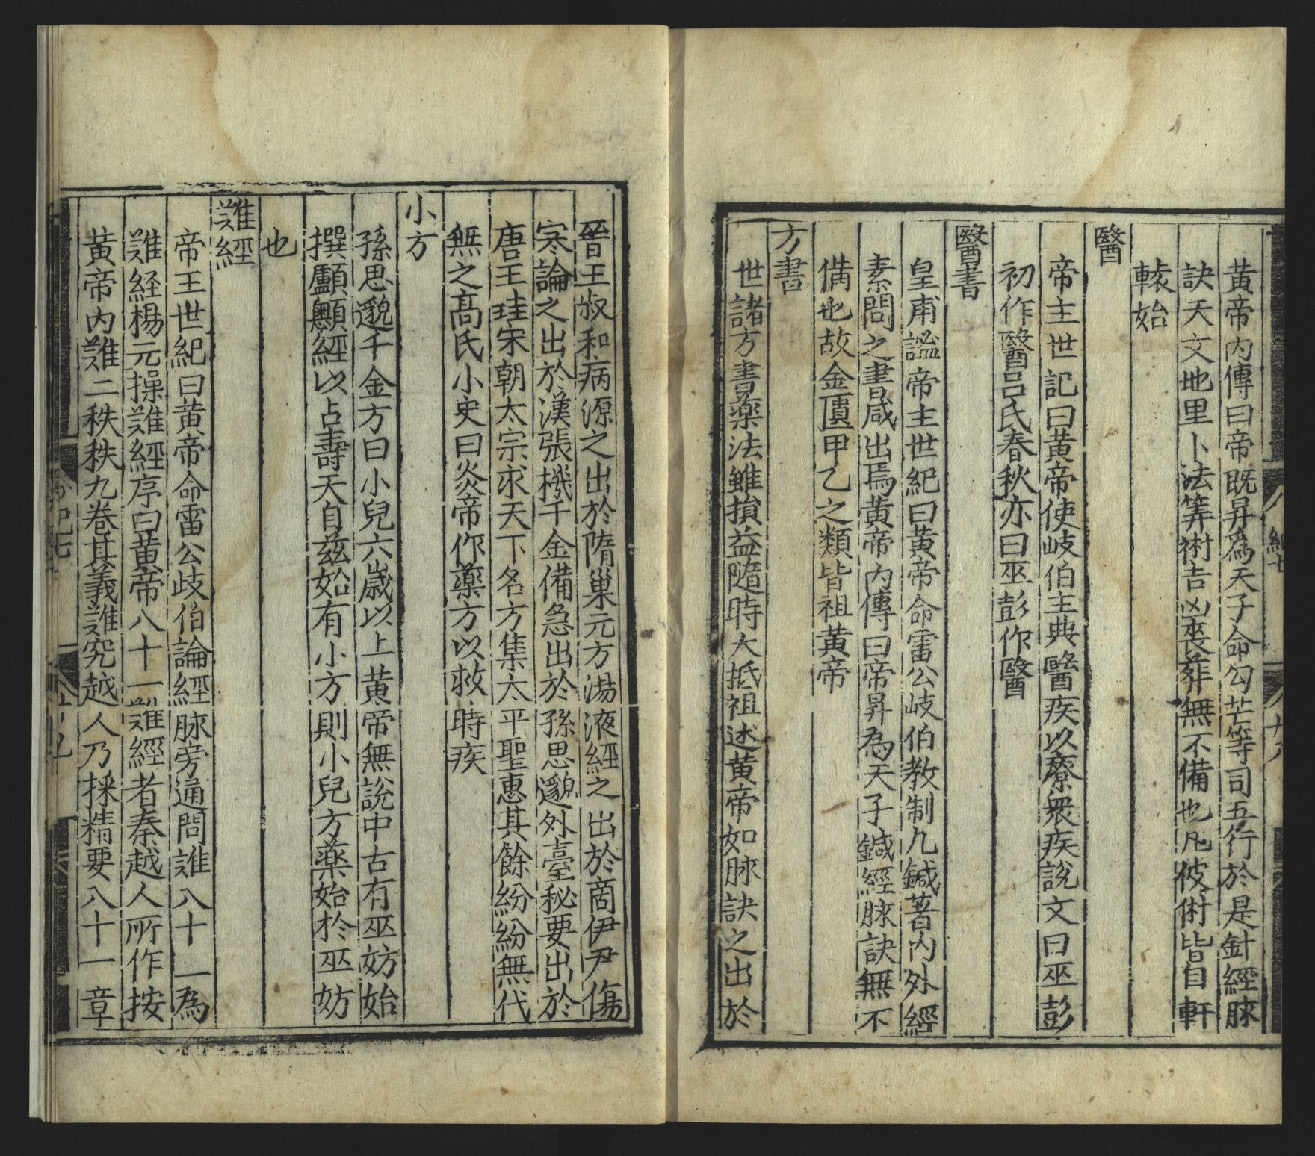 黄帝内傳曰帝既昇為天子命勾芒等司五行於是針經脉
訣天文地里卜法筭術吉凶喪葬無不備也凡彼術皆自軒
轅始
醫
帝主世記曰黄帝使岐伯主典醫疾以療衆疾說文曰巫彭
初作醫吕氏春秋亦曰巫彭作醫
醫書
皇甫謐帝主世紀曰黄帝命雷公歧伯教制九鍼著内外經
素問之書咸出焉黄帝内傳曰帝昇為天子鍼經脉訣無不
備也故金匱甲乙之類皆祖黄帝
方書
世諸方書藥法雖損益隨時大抵祖述黄帝如脉訣之出於
晉王叔和病源之出於隋巢元方湯液經之出於商伊尹傷
寒論之出於漢張機千金備急出於孫思邈外臺秘要出於
唐王珪宋朝太宗求天下名方集太平聖惠其餘紛紛無代
無之髙氏小史曰炎帝作藥方以救時疾
小方
孫思邈千金方曰小兒六歳以上黄帝無說中古有巫妨始
撰顱顖經以占壽夭自兹始有小方則小兒方藥始於巫妨
也
難經
帝王世紀曰黄帝命雷公歧伯論經脉旁通問難八十一為
難経楊元操難經序曰黄帝八十一難經者秦越人所作按
黄帝内難二秩秩九卷其義難究越人乃採精要八十一章